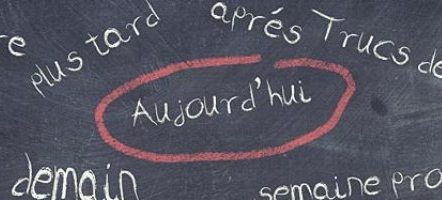 re
plus tard
aprés
Trucs de
Aujourd'hui
demain
semaine pro